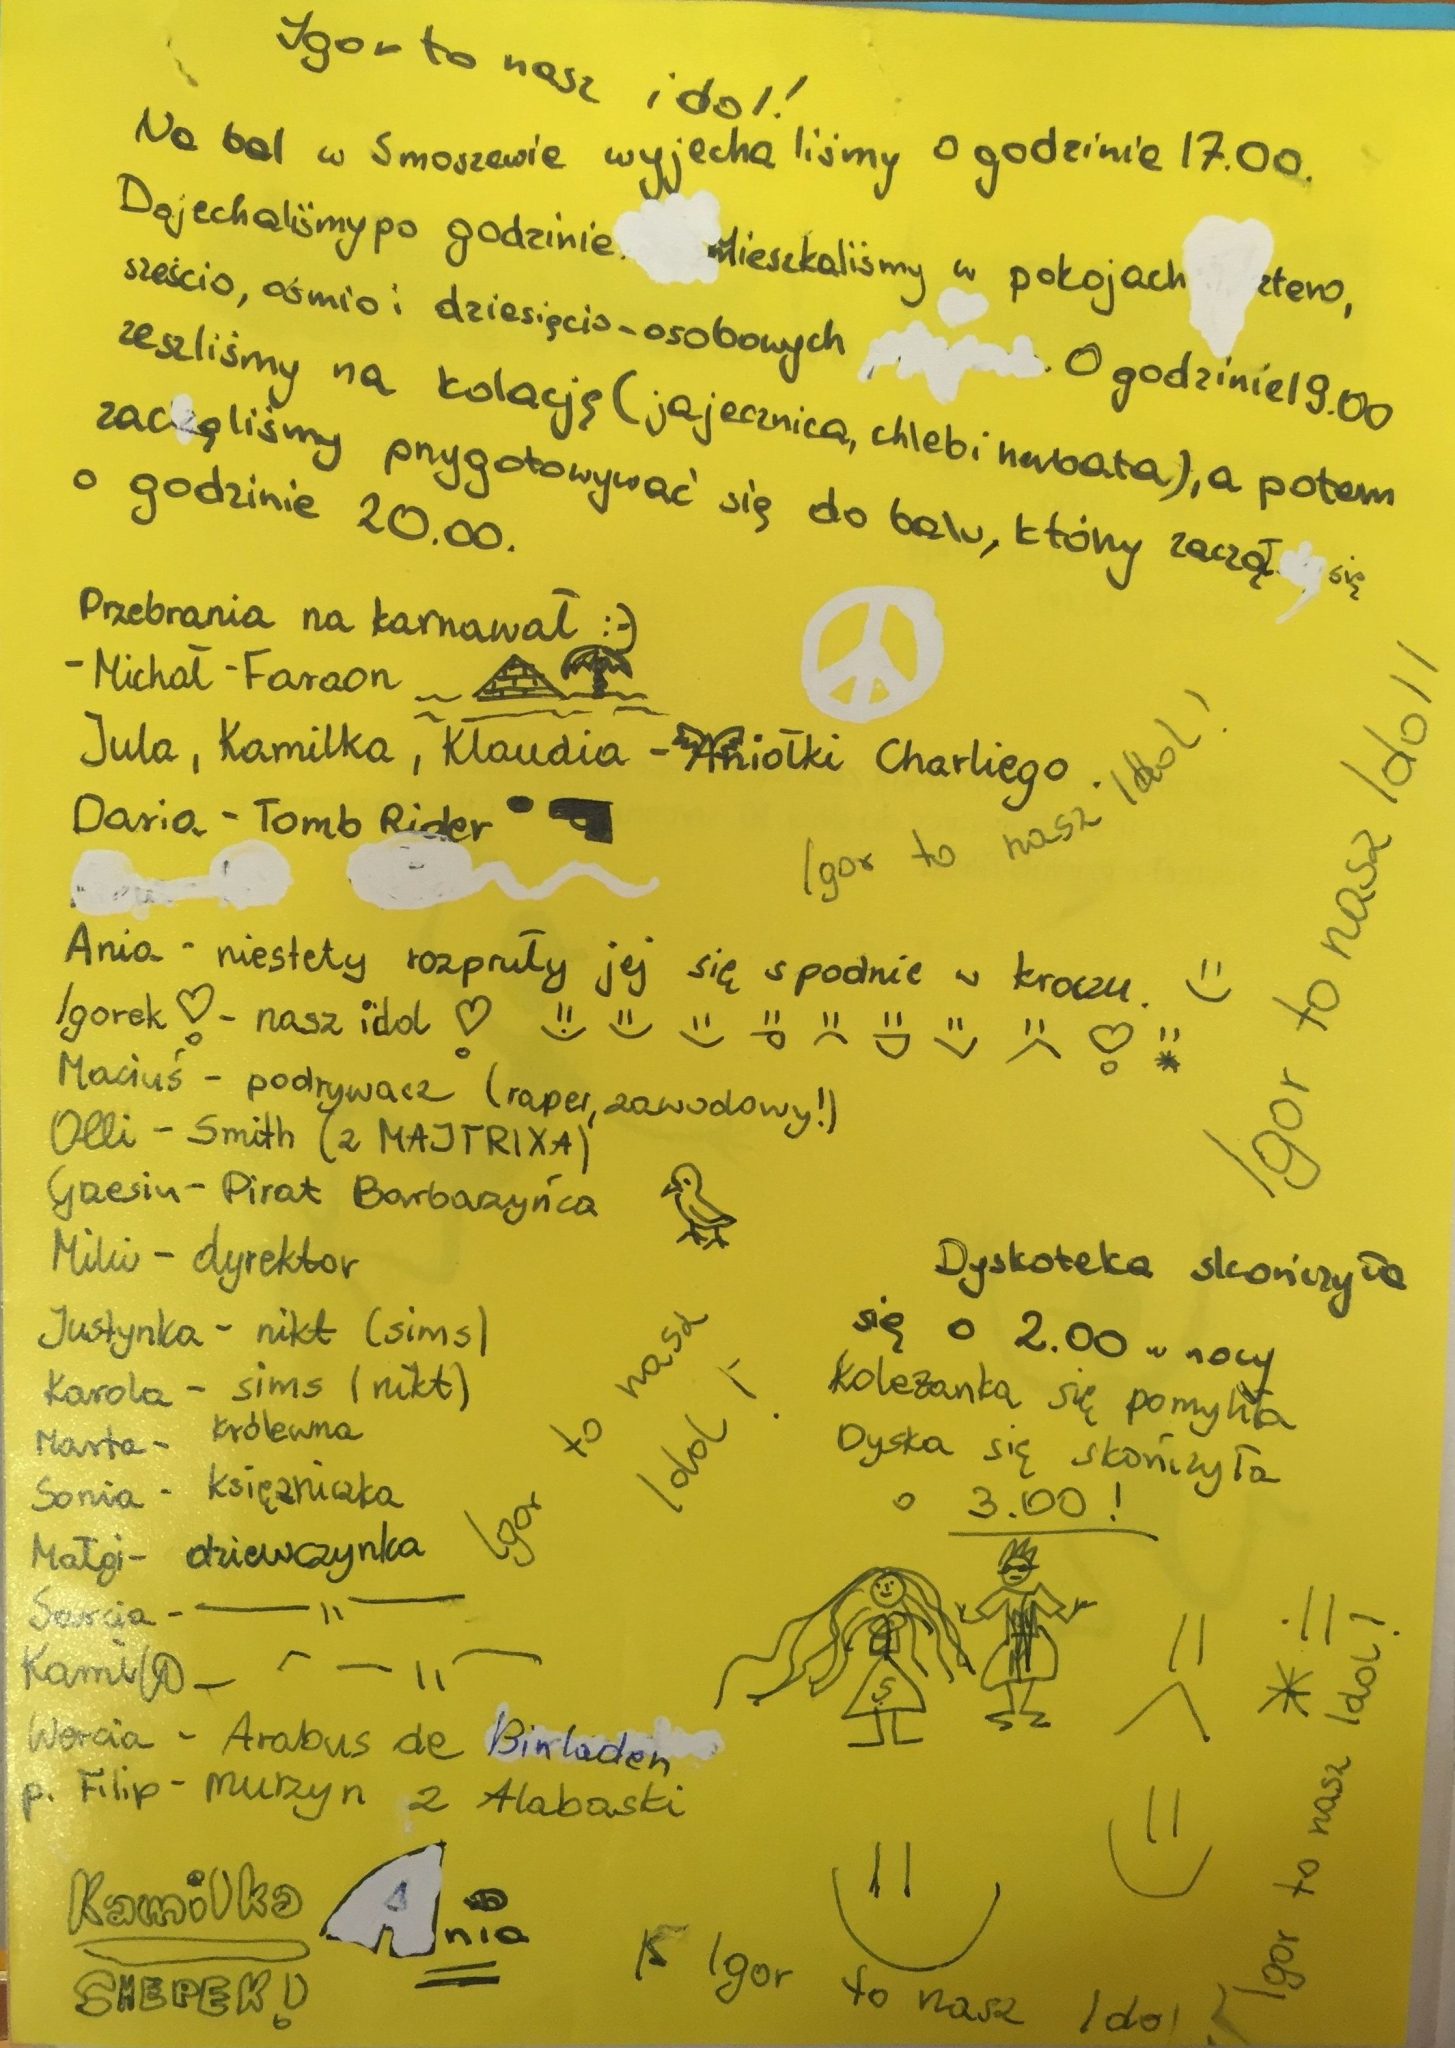 Igor to nasz idol!
Na bal w Smoszewie wyjechaliśmy o godzinie 17.00.
Dojechaliśmy po godzinie. Mieszkaliśmy w pokojach cztero,
sześcio, ośmio i dziesięcio-osobowych . O godzinie 19.00
zeszliśmy na kolację (jajecznica, chleb i herbata), a potem
zaczęliśmy przygotowywać się do balu, który zaczął się
o godzinie 20.00.
Przebrania na karnawał :-)
- Michał - Faraon
Jula, Kamilka, Klaudia - Aniołki Charliego.
Daria - Tomb Rider
Igor to nasz Idol!
Igor to nasz Idol!
Ania - niestety rozpruły jej się spodnie w kroczu.
Igorek - nasz idol
Maciuś - podrywacz (raper, zawodowy!)
Olli - Smith (z MAJTRIXA)
Grzesiu - Pirat Barbarzyńca
Miliu - dyrektor
Justynka - nikt (sims)
Karola - sims (nikt)
Marta - królewna
Sonia - księżniczka
Małgi - dziewczynka
Sarcia - — 11 —
Kamil - — 11 —
Wercia - Arabus de Binladen
p. Filip - murzyn z Alabaski
Igor to nasz Idol!
Dyskoteka skończyła
się o 2.00 w nocy
Koleżanka się pomyliła
Dyska się skończyła
o 3.00!
Igor to nasz Idol!
Kamilka
SHEPEK!
Ania
Igor to nasz Idol